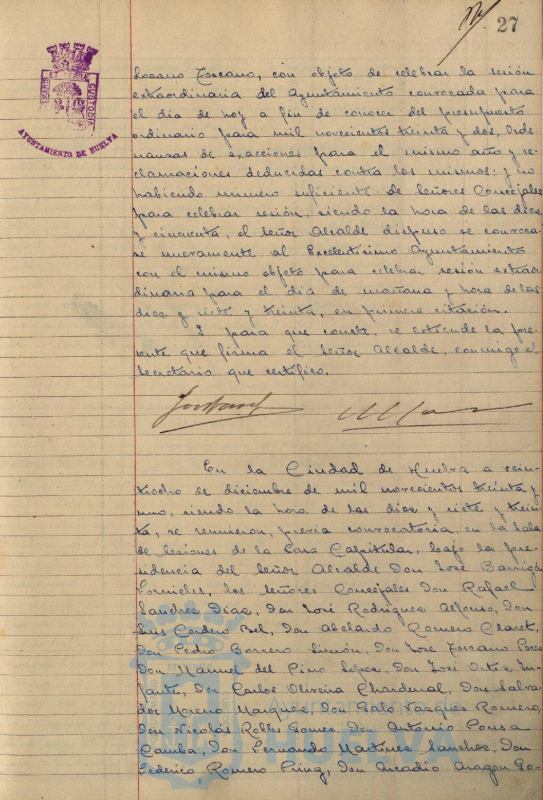 27
AYUNTAMIENTO DE HUELVA
CUSTODIA
Lozano Toscano, con objeto de celebrar la sesión
extraordinaria del Ayuntamiento convocada para
el dia de hoy a fin de conocer del presupuesto
ordinario para mil novecientos treinta y dos, Orde-
nanzas de exacciones para el mismo año y re-
clamaciones deducidas contra los mismos; y no
habiendo numero suficiente de Señores Concejales
para celebrar sesión, siendo la hora de las diez
y cincuenta, el Señor Alcalde dispuso se convoca-
se nuevamente al Excelentisimo Ayuntamiento
con el mismo objeto para celebrar sesión extraor-
dinaria para el dia de mañana y hora de las
diez y siete y treinta, en primera citación.
Y para que conste, se extiende la pre-
sente que firma el Señor Alcalde, conmigo el
Secretario que certifico.
En la Ciudad de Huelva a vein-
tiocho de diciembre de mil novecientos treinta y
uno, siendo la hora de las diez y siete y trein-
ta, se reunieron, previa convocatoria, en la Sala
de Sesiones de la Casa Capitular, bajo la pre-
sidencia del Señor Alcalde Don José Barrigá
Fornieles, los Señores Concejales Don Rafael
Sanchez Diaz, Don José Rodriguez Alfonso, Don
Luis Cordero Bel, Don Abelardo Romero Claret,
Don Pedro Borrero Limón, Don José Toscano Perez
Don Manuel del Pino López, Don José Ortiz In-
fante, Don Carlos Oliveira Chardenal, Don Salva-
dor Moreno Marquez, Don Galo Vazquez Romero,
Don Nicolás Robles Gomez, Don Antonio Ponsa
Camba, Don Fernando Martinez Sanchez, Don
Federico Romero Don Arcadio Aragon Go-
HUELVA